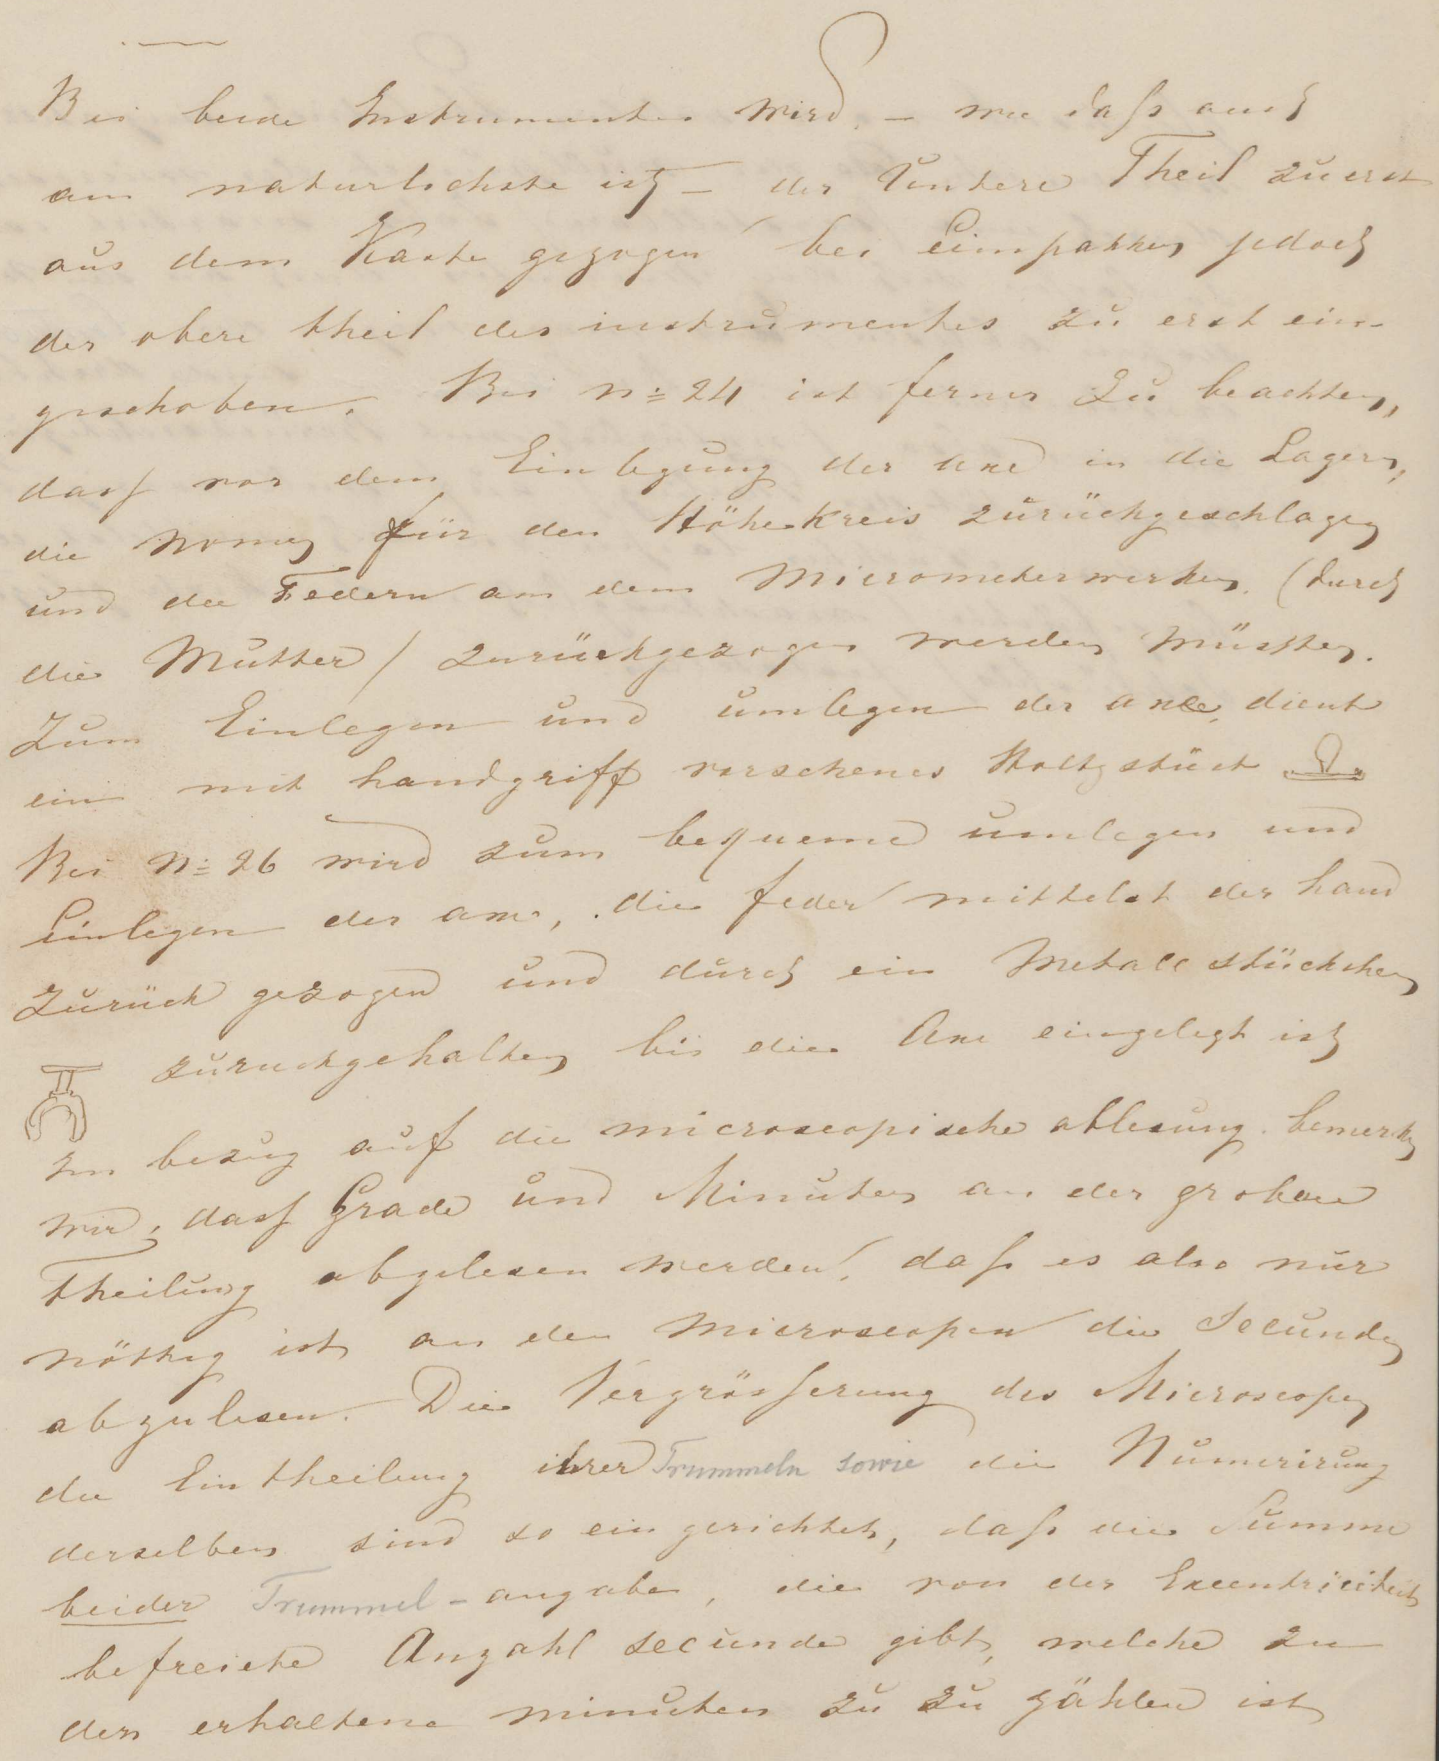 Bei beide Instrumenten wird, – wie daß auch
am naturlichste ist – der Untere Theil zuerst
aus dem Kaste gezogen bei Einpakken jedoch
der obere theil des instrumentes zu erst ein-
geschoben. Bei No 24 ist ferner zu beachten,
dass vor dem Einlegung der axe in die Lagern,
die Noniey für den Höhenkreis zurückgeschlagen
und die Federn am dem Micrometerwerken. (durch
die Mutter / zurückgezogen werden müssten.
Zum Einlegen und umlegen der axe, dient
ein mit handgriff versehenes Holtzstück
Bei No 26 wird zum bequeme umlegen und
Einlegen der axe, die feder mittelst der hand
zurück gezogen und durch ein Metall stückchen
zuruckgehalten bis die Axe eingelegt ist
In bezug auf die microscopische ablesung bemerken
wir, dass Grade und Minuten an der grobere
theilung abgelesen werden, daß es also nur
nöthig ist an den Microscopen die Secunden
abzulesen. Die Vergrösserung des Microscopen
die Eintheilung ihrer Trummeln sowie die Numerirung
derselben sind so ein gerichtet, daß die Summe
beider Trummel-angabe, die von der Excentriciteit
befreiete Anzahl secunde gibt, welche zu
den erhaltene minuten zu zu zählen ist